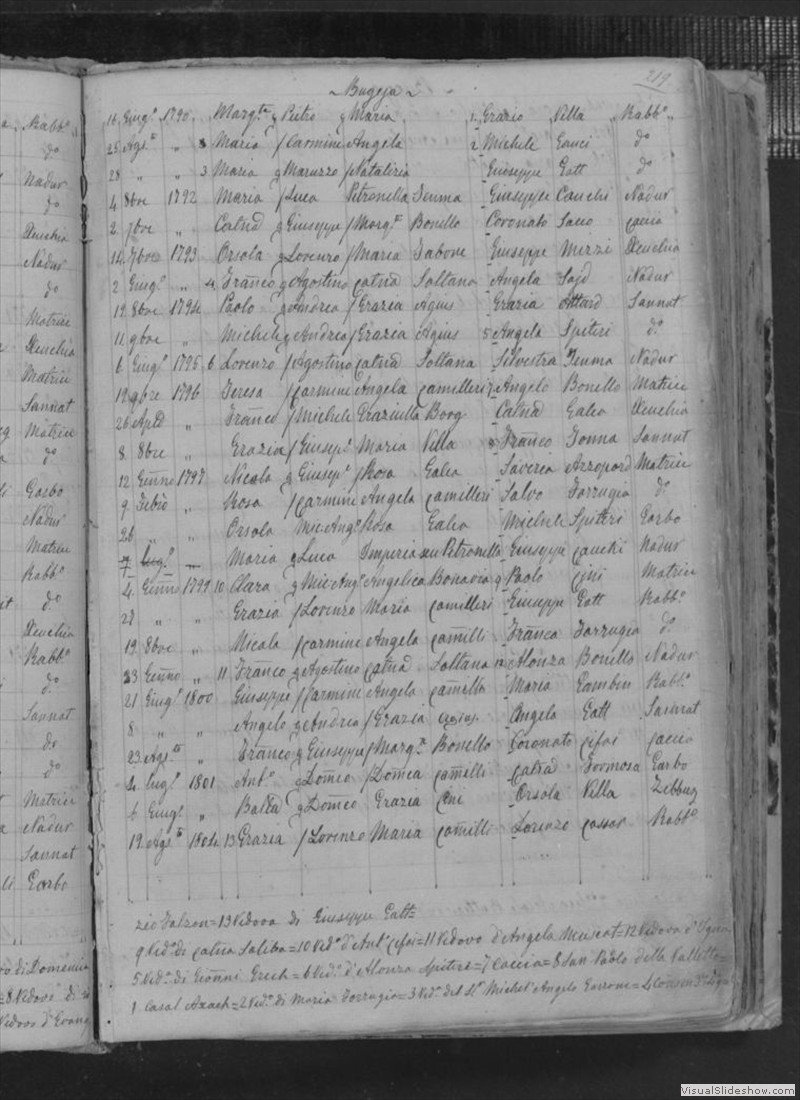 219
~ Bugeja ~
16 Giug.o 1790 Marg.ta g Pietro g Maria 1 Grazio Villa Rabb.o
25 Ags.to " Maria f Carmine Angela 2 Michele Gauci d.o
28 " " 3 Maria g Maruzzo f Natalizia Giuseppe Gatt d.o
4 8bre 1792 Maria f Luca Petronella Tewma Giuseppe Cauchi Nadur
2 7bre " Catña g Giuseppe f Marg.ta Bonello Coronato Caccia
14 7bre 1793 Orsola g Lorenzo f Maria Tabone Giuseppe Mirzi Xeuchia
2 Giug.o " 4 Franco g Agostino Catña Soltana Angela Sajd Nadur
19 8bre 1794 Paolo g Andrea f Grazia Agius Grazia Attard Sannat
11 9bre " Michele g Andrea f Grazia Agius 5 Angela Spiteri d.o
6 Giug.o 1795 6 Lorenzo f Agostino Catña Soltana Silvestra Tewma Nadur
19 9bre 1796 Teresa f Carmine Angela Camilleri 7 Angelo Bonello Matrice
26 Aple " Franco f Michele Graziulla Borg Catña Galea Xeuchia
8 8bre " Grazia f Giusep.e Maria Villa 8 Franco Tonna Sannat
12 Genño 1797 Nicola g Giusep.e f Rosa Galea Saveria Azzopard Matrice
9 Febro " Rosa f Carmine Angela Camilleri Salvo Farrugia d.o
26 " " Orsola Mic.Ang.o Rosa Galea Michele Spiteri Garbo
7 Lug.o — Maria g Luca Imperia seu Petronella Giuseppe Cauchi Nadur
4 Genño 1799 10 Clara g Mic.Ang.o Angelica Bonavia 9 Paolo Cini Matrice
27 " " Grazia f Lorenzo Maria Camilleri Giuseppe Gatt Rabb.o
19 8bre Nicola f Carmine Angela Camilli Franca Farrugia d.o
23 Genño " 11 Franco g Agostino Catña Soltana 12 Alonza Bonello Nadur
21 Giug.o 1800 Giuseppe f Carmine Angela Camelli Maria Zambin Rabb.o
8 " " Angelo g Andrea f Grazia Agius Angela Gatt Sannat
23 Ags.to " Franco g Giuseppe f Marg.ta Bonello Coronato Cifai Caccia
4 Lug.o 1801 Ant.o g Domco f Domca Camilli Catña Formosa Garbo
6 Giug.o " Balta g Domco Grazia Cini Orsola Villa Zebbug
19 Ags.to 1804 13 Grazia f Lorenzo Maria Camilli Lorenzo Cassar Rabb.o
zio Falzon = 13 Vedova di Giuseppe Gatt =
9 Ved.o di Catña Saliba = 10 Ved.a d'Ant.o Cifai = 11 Vedovo d'Angela Muscat = 12 Vedova d'
5 Ved.a di Gionni Grech = 6 Ved.o d'Alonza Spiteri = 7 Caccia = 8 San Paolo della Valletta =
1 Casal Axach = 2 Ved.o di Maria Farrugia = 3 Ved.a del Michel'Angelo = 4
Rabb.o
d.o
Nadur
d.o
Xeuchia
Nadur
d.o
Matrice
Xeuchia
Matrice
Sannat
Matrice
d.o
Garbo
Nadur
Matrice
Rabb.o
d.o
Xeuchia
Rabb.o
d.o
Sannat
d.o
d.o
Matrice
Nadur
Sannat
Garbo
vo di Domenica
= 8 Vedovo di
Vedovo d'Evang
VisualSlideshow.com